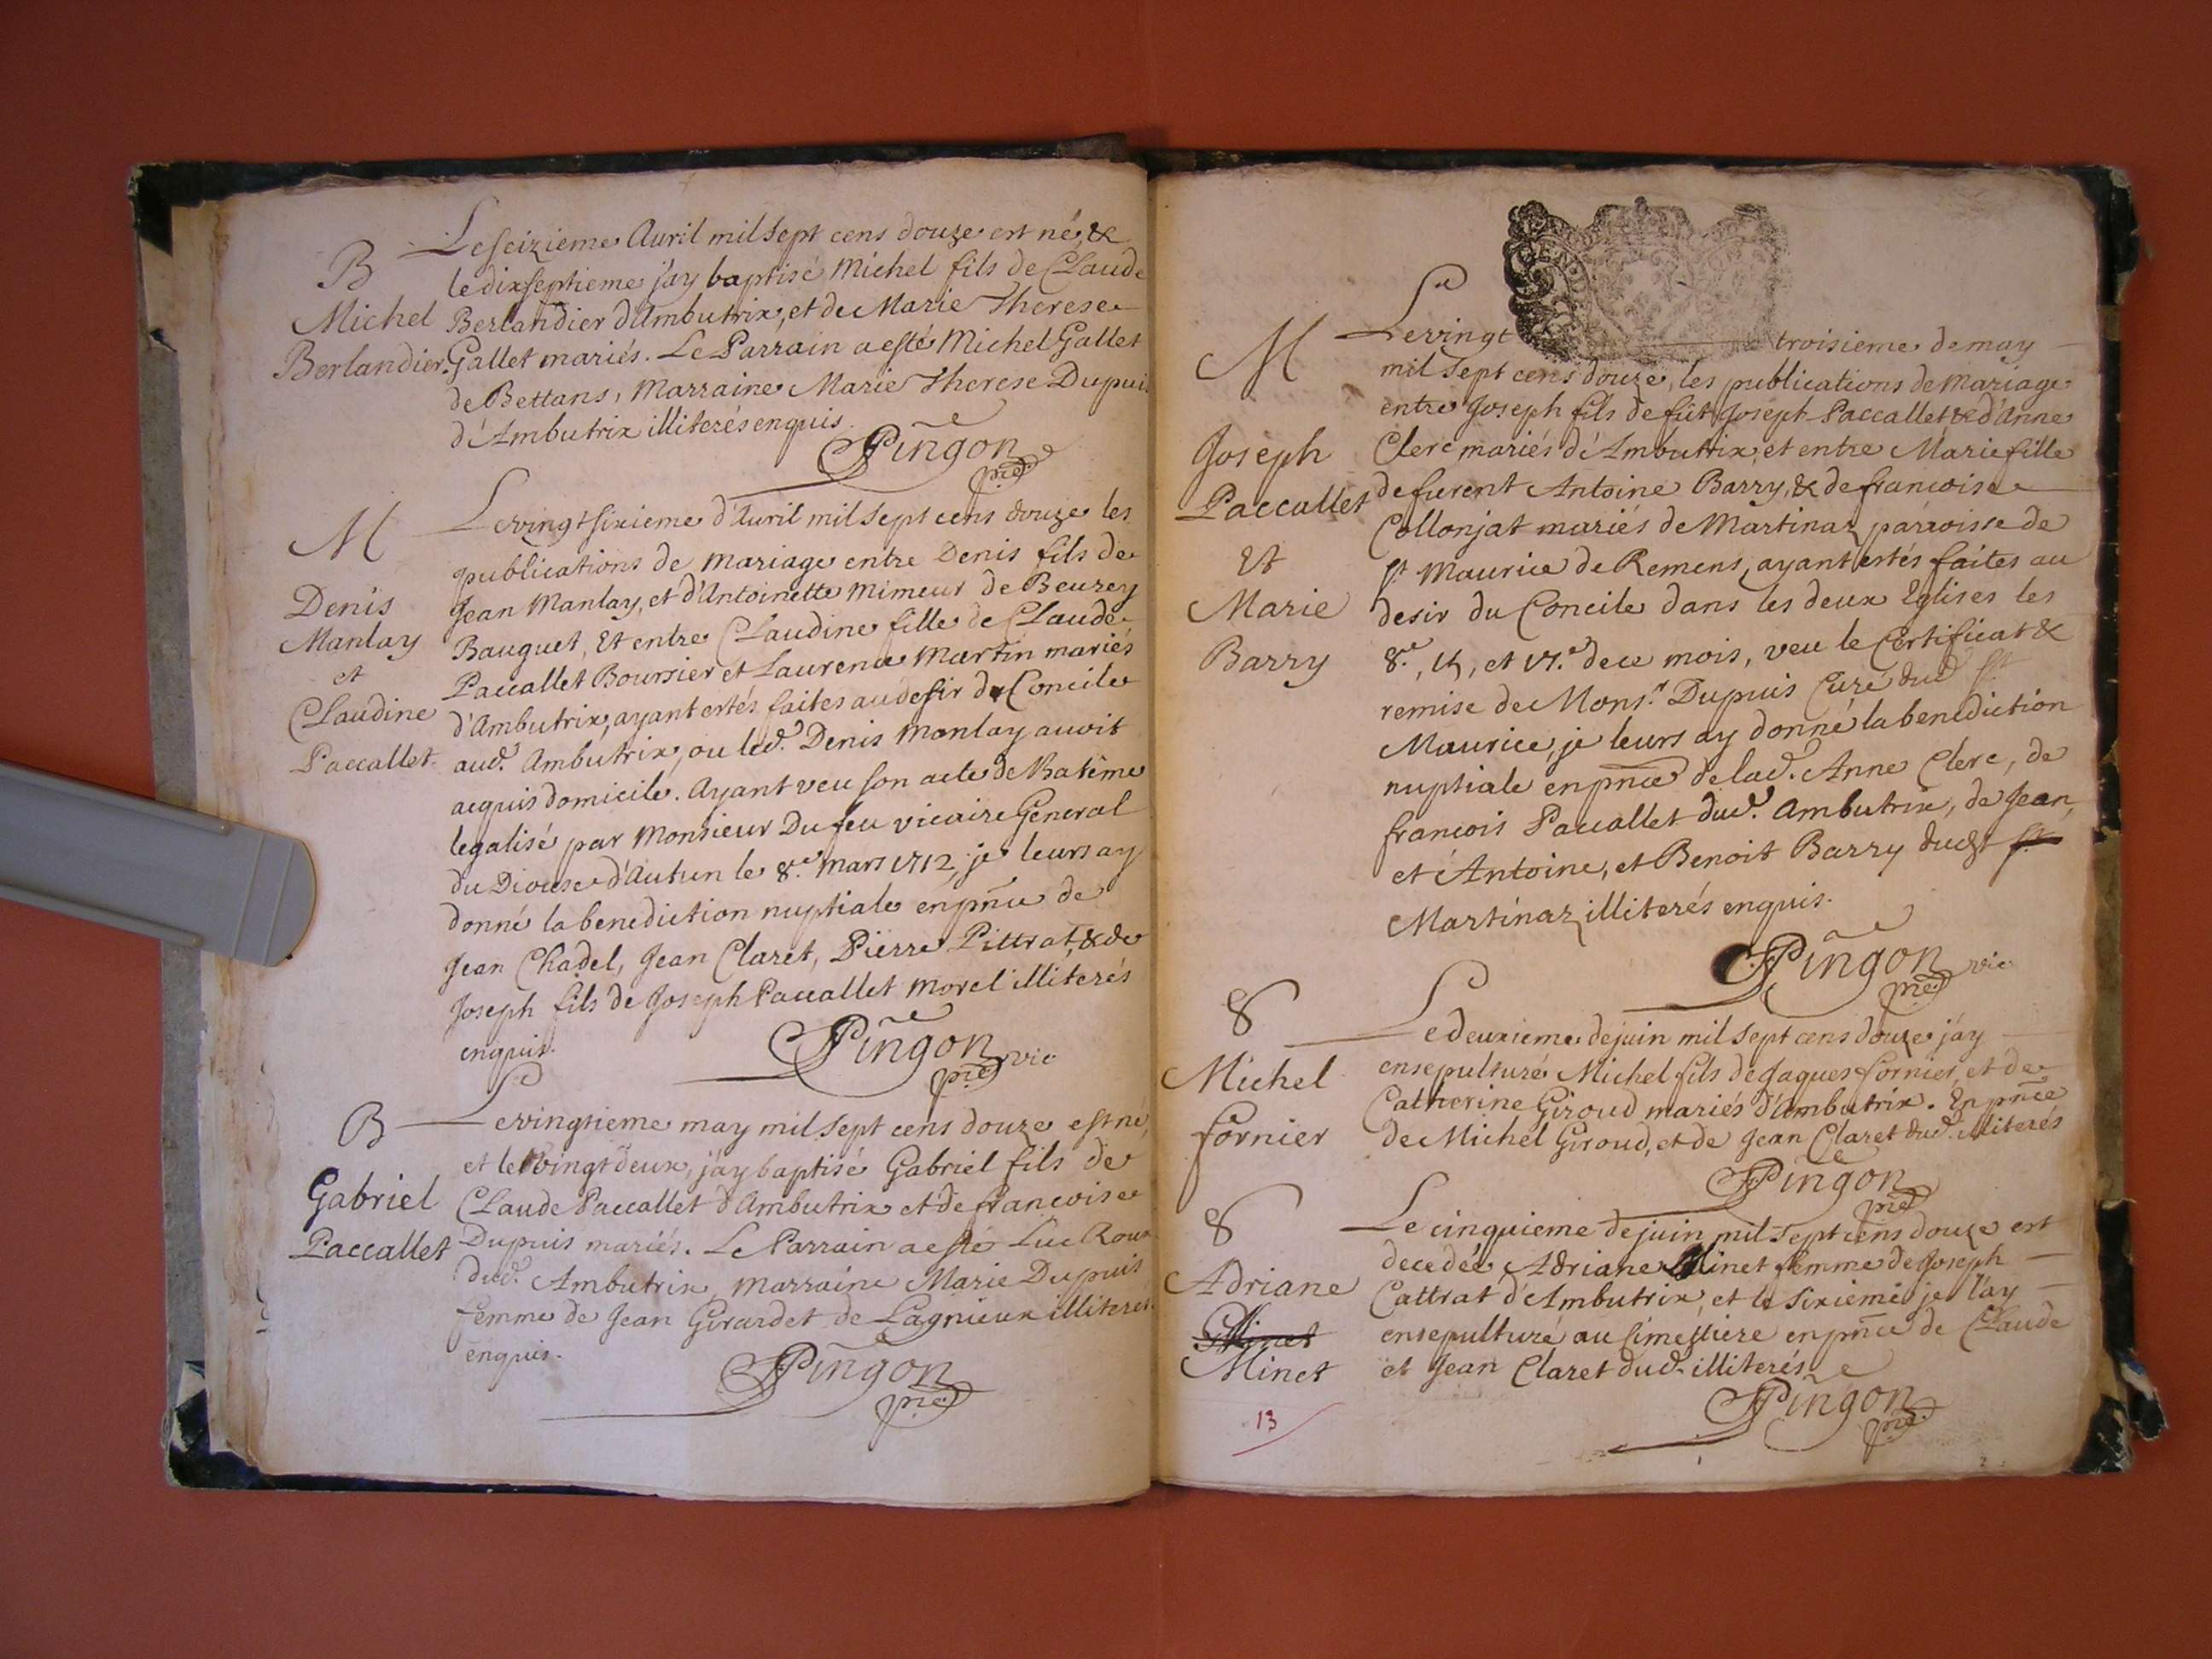 B
Michel
Berlandier
Le seizieme Avril mil sept cens douze est né, &
le dixseptieme j'ay baptisé Michel fils de Claude
Berlandier d'Ambutrix, et de Marie Therese
Gallet mariés. Le Parrain a esté Michel Gallet
de Bettans, Marraine Marie Therese Dupuis
d'Ambutrix illiterés enquis.
Pingon
pre
M
Denis
Manlay
et
Claudine
Paccallet
Le vingt sixieme d'Avril mil sept cens douze les
publications de mariage entre Denis fils de
Jean Manlay, et d'Antoinette Mimeur de Beurey
Bauguet, Et entre Claudine fille de Claude
Paccallet Boursier et Laurence Martin mariés
d'Ambutrix, ayant estés faites au desir du Concile
aud. Ambutrix, ou led. Denis Manlay avoit
acquis domicile. Ayant veu son acte de Batême
legalisé par Monsieur Dufeu vicaire General
du Diocese d'Autun le 8.e Mars 1712, je leurs ay
donné la benediction nuptiale en pnce de
Jean Chadel, Jean Claret, Pierre Pittrat, & de
Joseph fils de Joseph Paccallet Morel illiterés
enquis.
Pingon vic
pre
B
Gabriel
Paccallet
Le vingtieme may mil sept cens douze est né,
et le vingt deux, j'ay baptisé Gabriel fils de
Claude Paccallet d'Ambutrix et de francoise
Dupuis mariés. Le Parrain a esté Luc Roux
dud. Ambutrix, Marraine Marie Dupuis
femme de Jean Girardet de Lagnieux illiterés
enquis.
Pingon
pre
M
Joseph
Paccallet
Et
Marie
Barry
Le vingt troisieme de may
mil sept cens douze, les publications de mariage
entre Joseph fils de fût Joseph Paccallet & d'Anne
Clerc mariés d'Ambutrix, et entre Marie fille
de furent Antoine Barry, & de francoise
Collonjat mariés de Martinaz parroisse de
st Maurice de Remens, ayant estés faites au
desir du Concile dans les deux Eglises les
8.e, 15, et 17.e de ce mois, veu le Certificat &
remise de Mons.r Dupuis Curé dud st
Maurice, je leurs ay donné la benediction
nuptiale en pnce de lad. Anne Clerc, de
francois Paccallet dud. Ambutrix, de Jean,
et Antoine, et Benoit Barry dudt st
Martinaz illiterés enquis.
Pingon vic
pre
S
Michel
fornier
Le deuxieme de juin mil sept cens douze j'ay
ensepulturé Michel fils de Jaques fornier, et de
Catherine Giroud mariés d'Ambutrix. En pnce
de Michel Giroud, et de Jean Claret dud. illiterés
Pingon
pre
S
Adriane
Minet
Minet
Le cinquieme de juin mil sept cens douze est
decedée Adriane Minet femme de Joseph
Cattrat d'Ambutrix, et le sixieme je l'ay
ensepulturé au Cimestiere en pnce de Claude
et Jean Claret dud. illiterés
Pingon
pre
13